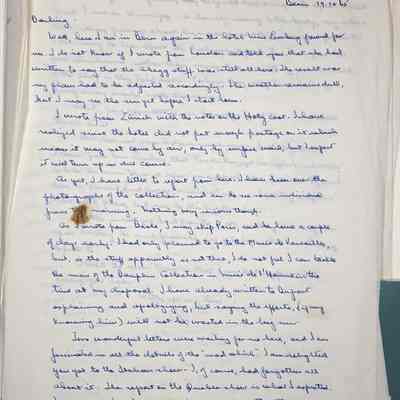 Bern 19.10.60
Darling,
Well, here I am in Bern again in the hotel Miss Landberg found for
me. I do not know if I wrote from London and told you that she had
written to say that the stuff was still all here. The result was
my plans had to be adjusted accordingly. The weather remains dull,
but I may see the sun yet before I start home.
I wrote from Zürich with the notes on the Holy coat. I have
realized since the hotel did not put enough postage on it which
means it may not come by air, only by surface mail, but I expect
it will turn up in due course.
As yet, I have little to report from here. I have been over the
photographs of the collection, and am to see some individual
pieces morning. Nothing very serious though.
As I wrote from Basle, I may skip Paris, and be home a couple
of days early. I had only planned to go to the Musée de Versailles,
but, as the stuff apparently is not there, I do not feel I can tackle
the mass of the Dauphin Collection in Musée de l'Homme in the
time at my disposal. I have already written to
explaining and apologizing, but saying the efforts, (if my
knowing him) will not be wasted in the long run
Two wonderful letters were waiting for me here, and I am
in all the details of the "mad whirl". I am delighted
you got to the show - I, of course, had forgotten all
about it. The report on the Quebec show is what I expected.